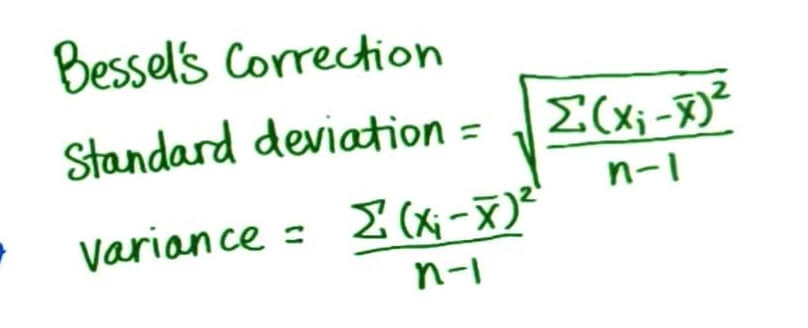 Bessel's Correction
Standard deviation = √(Σ(xᵢ - x̄)² / n-1)
variance = Σ(xᵢ - x̄)² / n-1